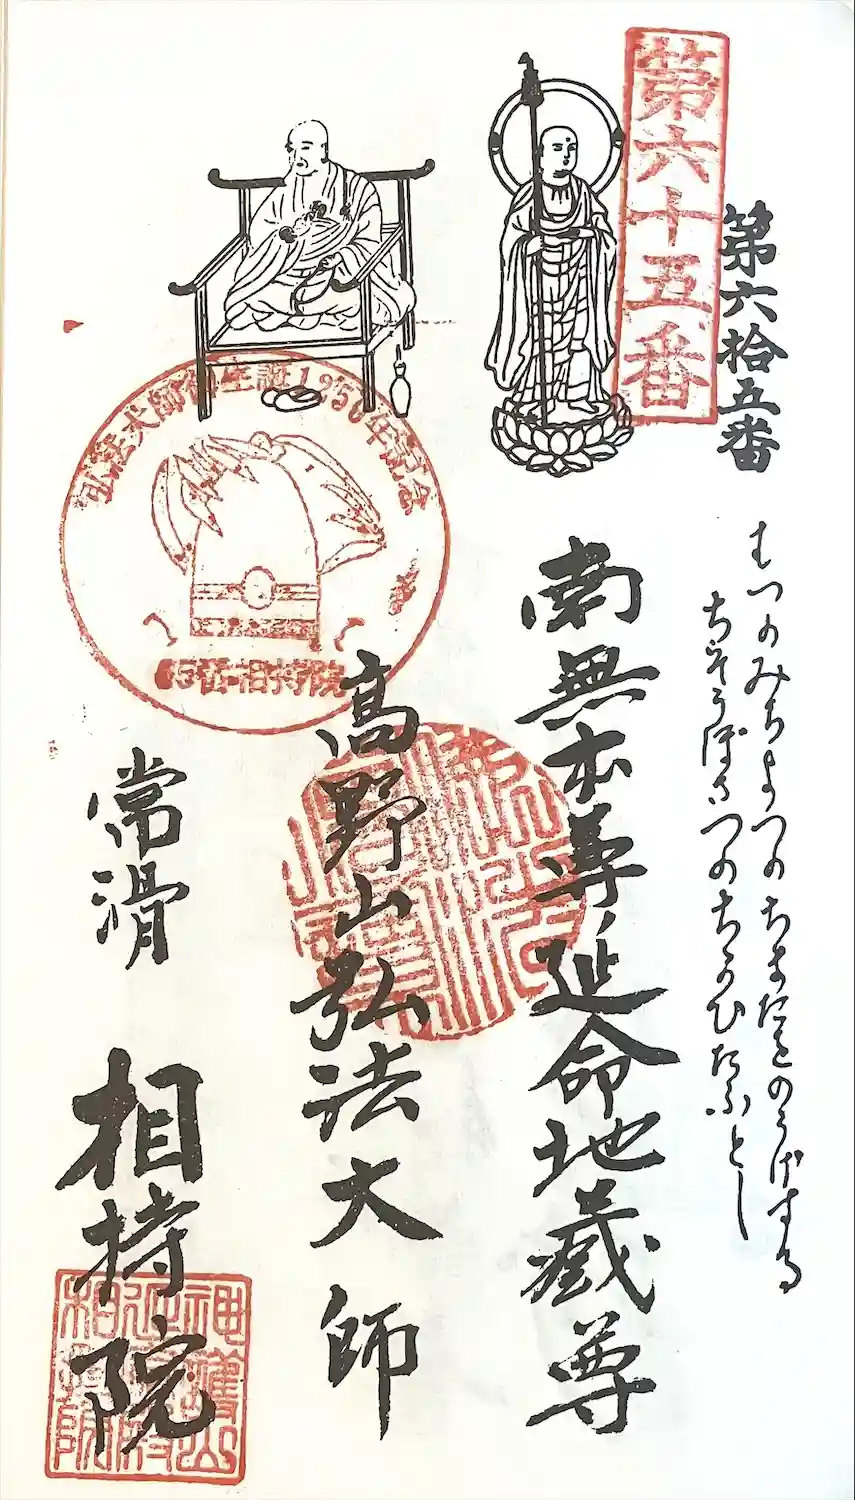 第六十五番
第六拾五番
むつのみちよつのちまたをのがする
ちぞうぼさつのちかひたふとし
南無本尊延命地蔵尊
高野山弘法大師
常滑
相持院
弘法大師御生誕1250年記念
65番・相持院